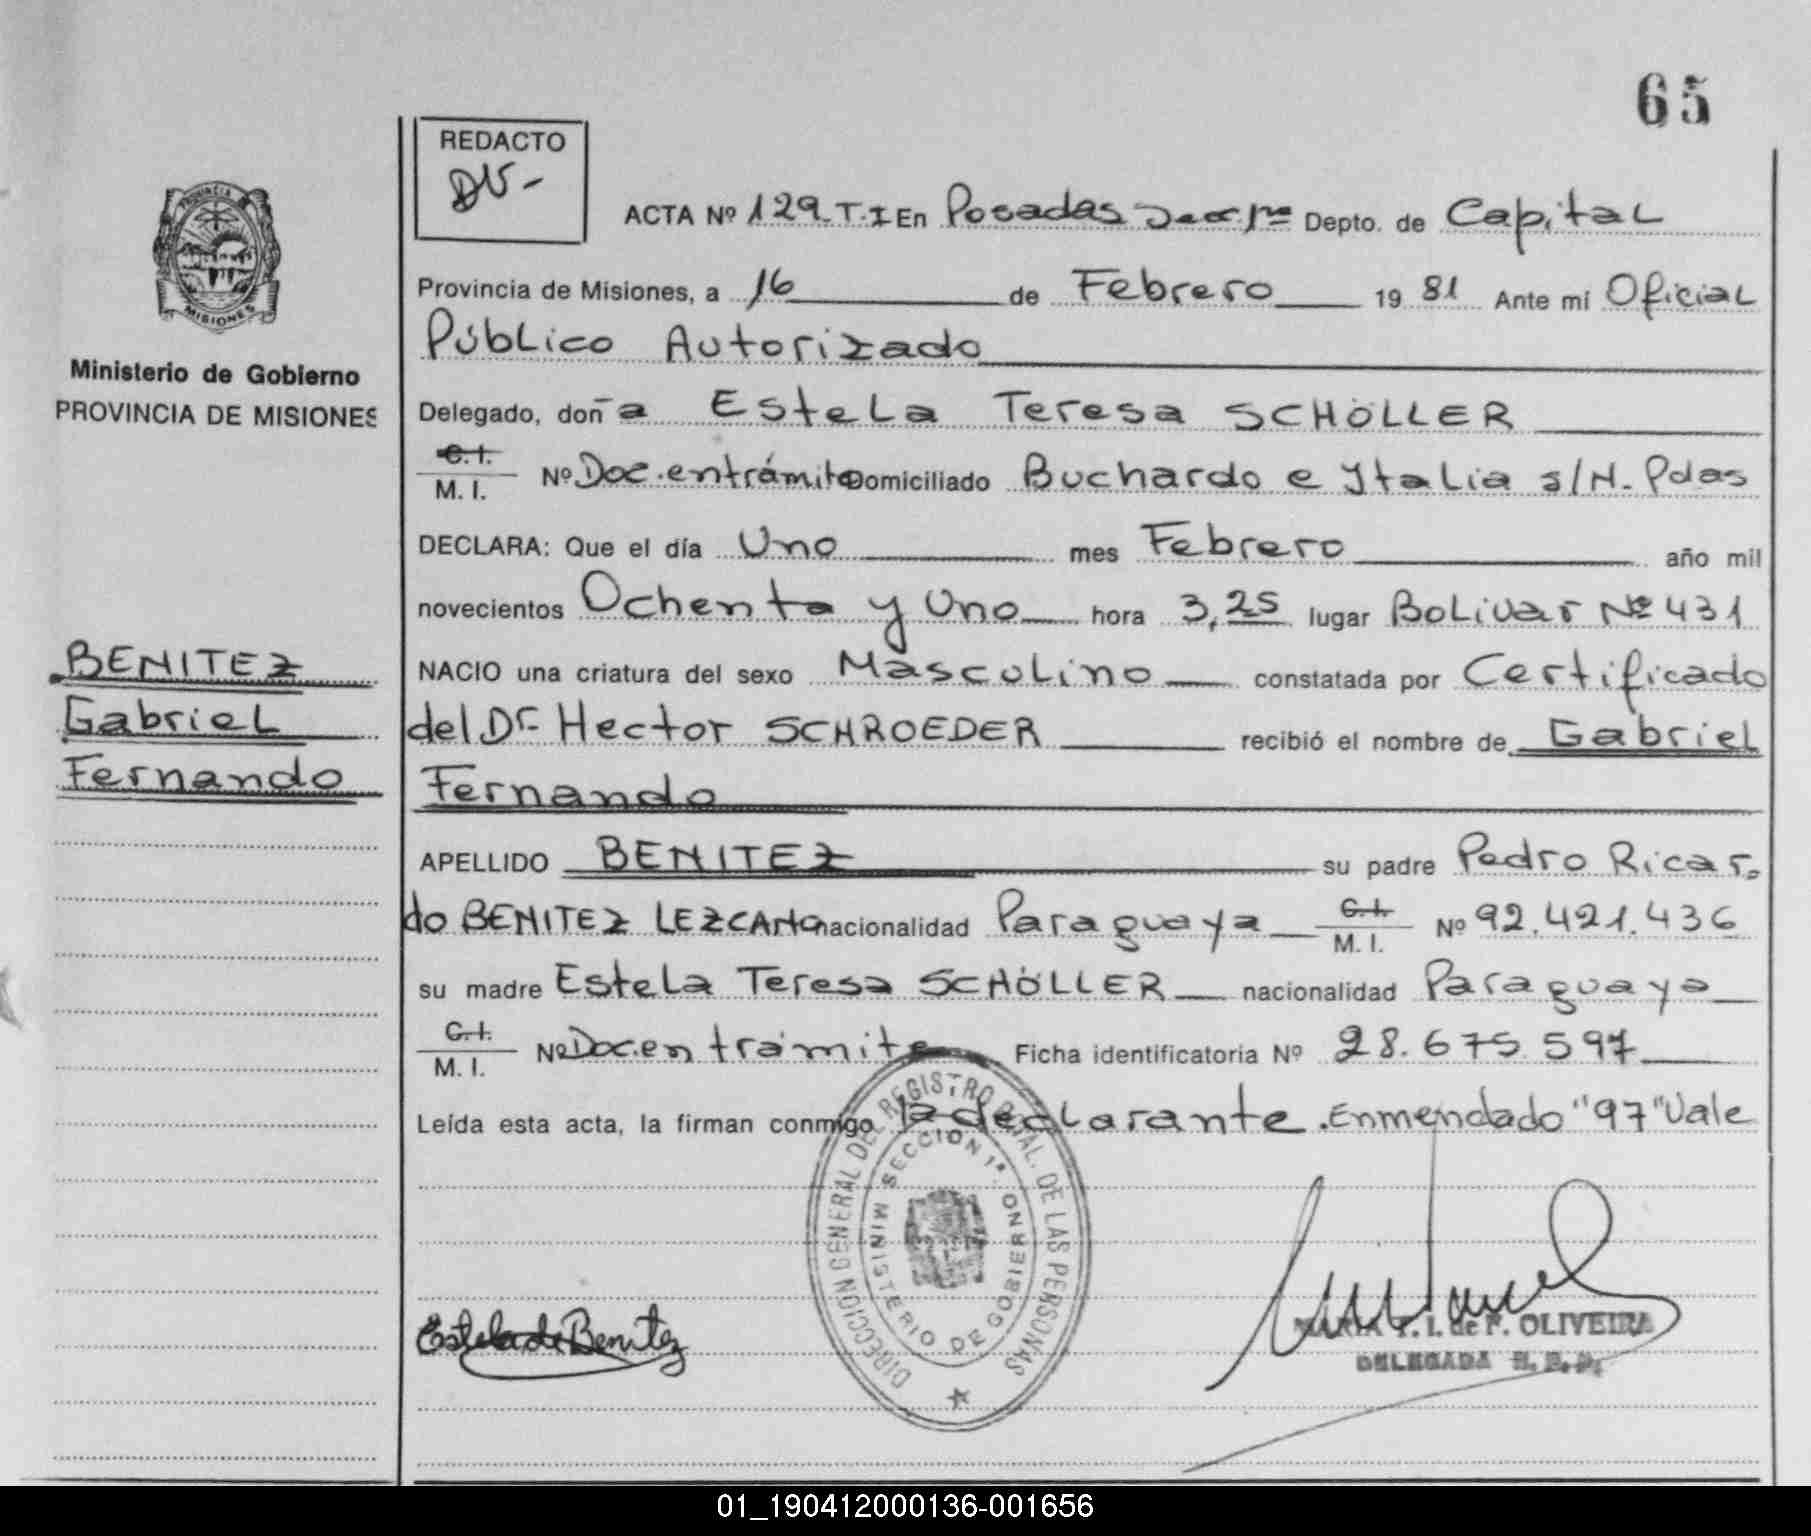 65
REDACTO
DV-
PROVINCIA
MISIONES
Ministerio de Gobierno
PROVINCIA DE MISIONES
BENITEZ
Gabriel
Fernando
ACTA Nº 129. T. I En Posadas Secc. 1ra Depto. de Capital
Provincia de Misiones, a 16 de Febrero 19 81 Ante mí Oficial
Público Autorizado
Delegado, doñ a Estela Teresa SCHÖLLER
C.I.
M. I. Nº Doc. entrámite Domiciliado Buchardo e Italia s/N. Pdas
DECLARA: Que el día Uno mes Febrero año mil
novecientos Ochenta y Uno hora 3,25 lugar Bolivar Nº 431
NACIO una criatura del sexo Masculino constatada por Certificado
del Dr Hector SCHROEDER recibió el nombre de Gabriel
Fernando
APELLIDO BENITEZ su padre Pedro Ricar-
do BENITEZ LEZCANO nacionalidad Paraguaya C.I. M. I. Nº 92.421.436
su madre Estela Teresa SCHÖLLER nacionalidad Paraguaya
C.I.
M. I. Nº Doc. en trámite Ficha identificatoria Nº 28.675.597
Leída esta acta, la firman conmigo la declarante. Enmendado "97" Vale
DIRECCION GENERAL DEL REGISTRO PCIAL. DE LAS PERSONAS
SECCION 1ª.
MINISTERIO DE GOBIERNO
Estela de Benitez
MARIA T. I. de F. OLIVEIRA
DELEGADA R. P. P.
01_190412000136-001656